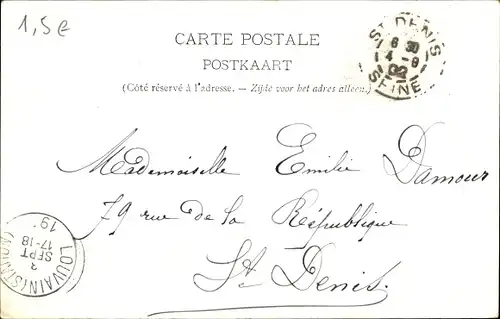 1,5€
CARTE POSTALE
POSTKAART
(Côté réservé à l'adresse. — Zijde voor het adres alleen.)
ST DENIS
6 30
4 - 9
02
SEINE
Mademoiselle Emilie Damour
79 rue de la République
St Denis
LOUVAIN (STATION)
3
SEPT
17-18
19